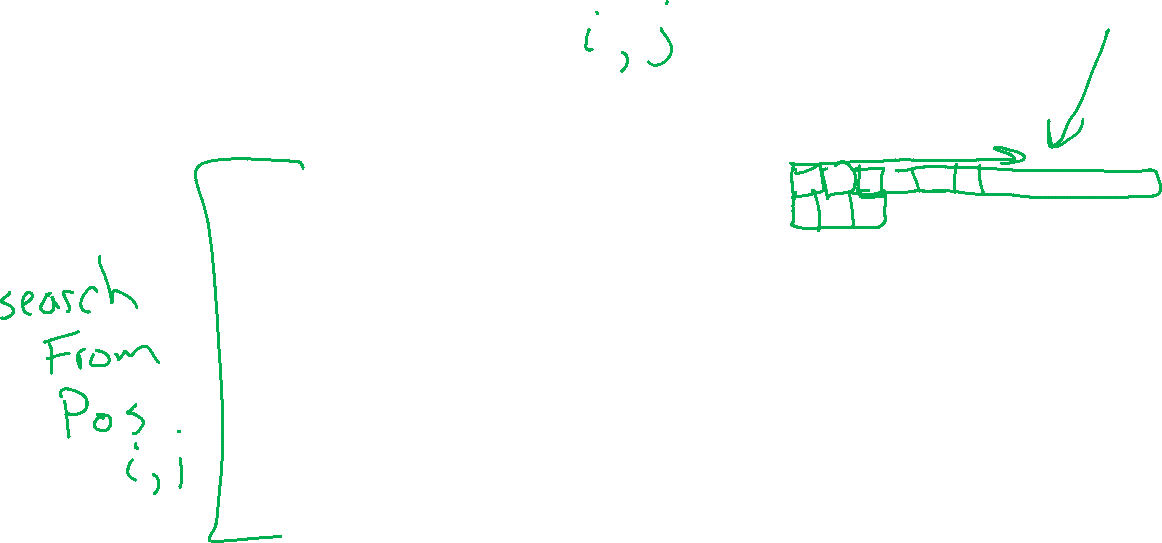 i, j
search
From
Pos
i, j